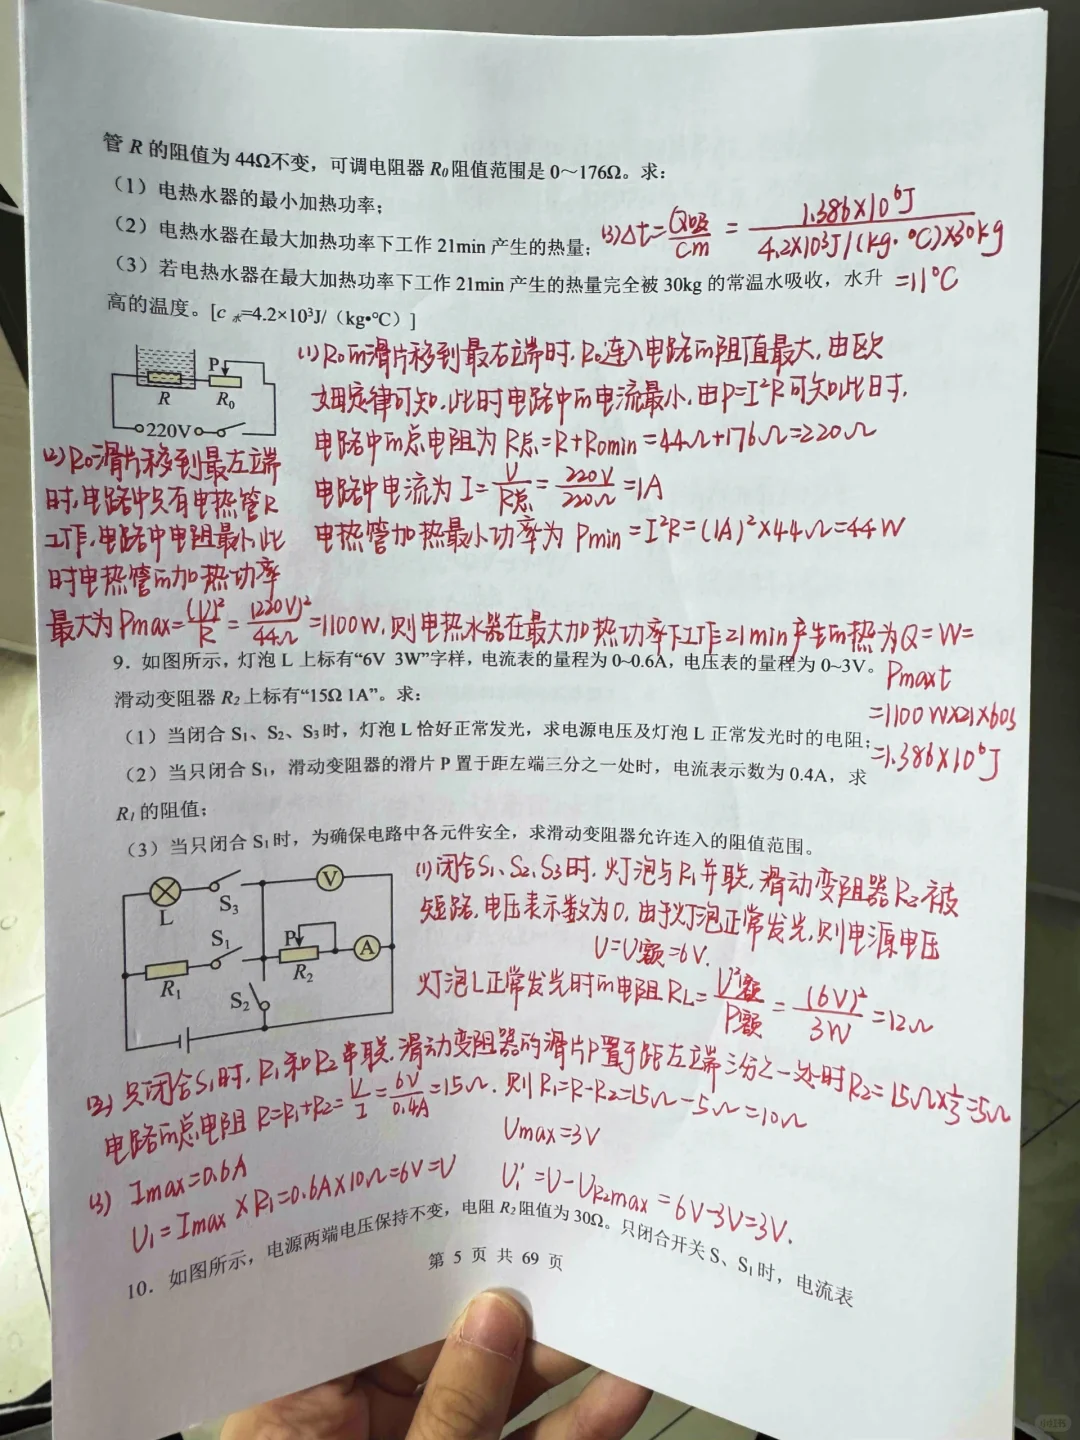 管 R 的阻值为 44Ω不变，可调电阻器 R₀ 阻值范围是 0～176Ω。求：
（1）电热水器的最小加热功率；
（2）电热水器在最大加热功率下工作 21min 产生的热量；
(3)Δt=Q吸/cm = 1.386×10⁶J/4.2×10³J/(kg·℃)×30kg
（3）若电热水器在最大加热功率下工作 21min 产生的热量完全被 30kg 的常温水吸收，水升
=11℃
高的温度。[c 水=4.2×10³J/（kg•℃）]
P
R
R₀
220V
(1) R₀的滑片移到最右端时，R₀连入电路的阻值最大，由欧
姆定律可知，此时电路中的电流最小，由P=I²R可知此时，
电路中的总电阻为 R总=R+R₀min=44Ω+176Ω=220Ω
电路中电流为 I=U/R总=220V/220Ω=1A
电热管加热最小功率为 Pmin=I²R=(1A)²×44Ω=44W
(2) R₀滑片移到最左端
时，电路中只有电热管R
工作，电路中电阻最小，此
时电热管的加热功率
最大为 Pmax=(U)²/R=(220V)²/44Ω=1100W，则电热水器在最大加热功率下工作21min产生的热为Q=W=
Pmaxt
=1100W×21×60s
=1.386×10⁶J
9．如图所示，灯泡 L 上标有“6V 3W”字样，电流表的量程为 0~0.6A，电压表的量程为 0~3V。
滑动变阻器 R₂ 上标有“15Ω 1A”。求：
（1）当闭合 S₁、S₂、S₃ 时，灯泡 L 恰好正常发光，求电源电压及灯泡 L 正常发光时的电阻；
（2）当只闭合 S₁，滑动变阻器的滑片 P 置于距左端三分之一处时，电流表示数为 0.4A，求
R₁ 的阻值；
（3）当只闭合 S₁ 时，为确保电路中各元件安全，求滑动变阻器允许连入的阻值范围。
L
S₃
V
S₁
P
A
R₁
R₂
S₂
(1)闭合S₁、S₂、S₃时，灯泡与R₁并联，滑动变阻器R₂被
短路，电压表示数为0，由于灯泡正常发光，则电源电压
U=U额=6V.
灯泡L正常发光时的电阻 RL=U²额/P额=(6V)²/3W=12Ω
(2) 只闭合S₁时，R₁和R₂串联，滑动变阻器的滑片P置于距左端三分之一处时R₂=15Ω×1/3=5Ω
电路的总电阻 R=R₁+R₂=U/I=6V/0.4A=15Ω. 则R₁=R-R₂=15Ω-5Ω=10Ω
(3) Imax=0.6A
Umax=3V
U₁=Imax×R₁=0.6A×10Ω=6V=U
U₁'=U-UR₂max=6V-3V=3V.
10．如图所示，电源两端电压保持不变，电阻 R₂ 阻值为 30Ω。只闭合开关 S、S₁ 时，电流表
第 5 页 共 69 页
小红书